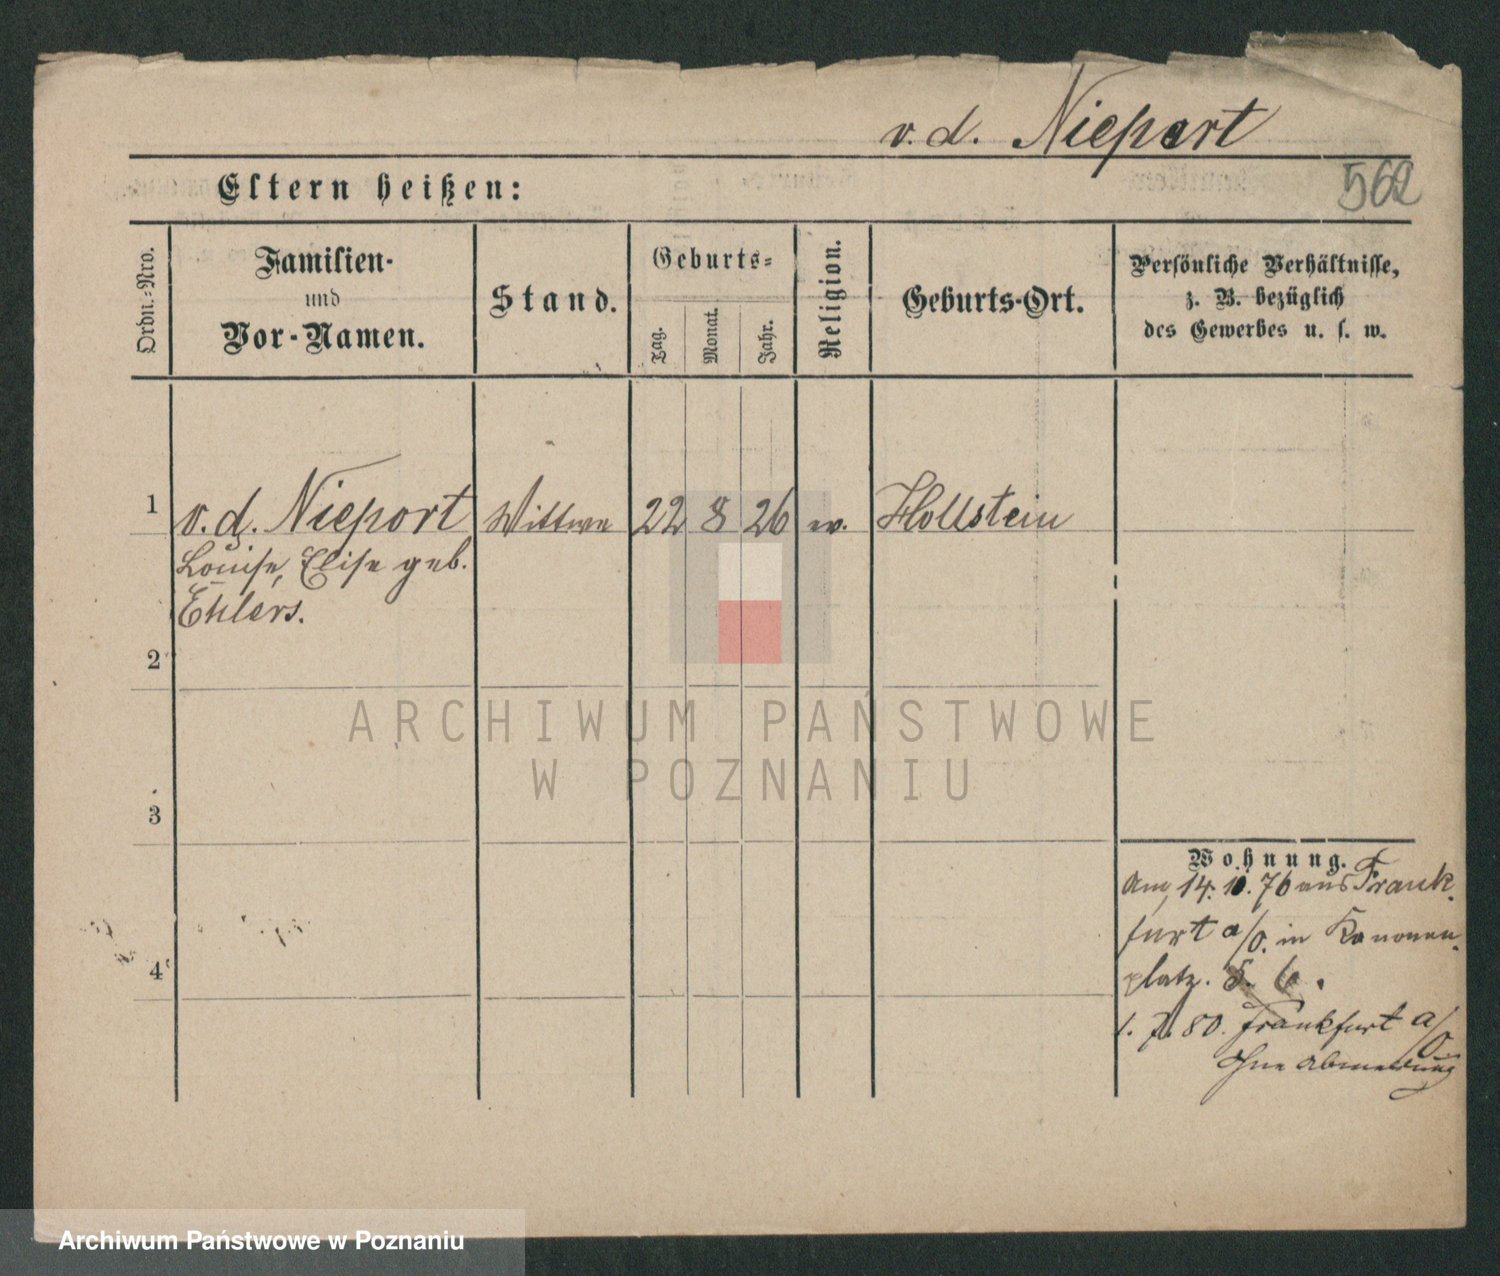 v. d. Nieport
562
Eltern heißen:
Ordn.=Nro.
Familien-
und
Vor-Namen.
Stand.
Geburts=
Tag.
Monat.
Jahr.
Religion.
Geburts-Ort.
Persönliche Verhältnisse,
z. B. bezüglich
des Gewerbes u. s. w.
1 v. d. Nieport Wittwe 22 8 26 ev. Hollstein
Louise, Elise geb.
Ehlers.
2
3
4
ARCHIWUM PAŃSTWOWE
W POZNANIU
Wohnung.
Am 14. 10. 76 aus Frank-
furt a/O. in Kanonen-
platz. 6.
1. 7. 80. Frankfurt a/O.
Ohne Abmeldung
Archiwum Państwowe w Poznaniu